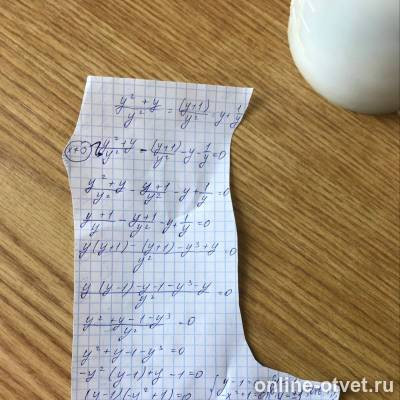 (y²+y)/y² = (y+1)/y² - y + 1/y
x≠0 (y²+y)/y² - (y+1)/y² - y - 1/y = 0
(y²+y)/y² - (y+1)/y² - y + 1/y = 0
(y+1)/y - (y+1)/y² - y + 1/y = 0
(y(y+1) - (y+1) - y³ + y)/y² = 0
(y(y-1) - y - 1 - y³ - y)/y² = 0
(y² + y - 1 - y³)/y² = 0
y² + y - 1 - y³ = 0
-y²(y-1) + y - 1 = 0
(y-1)(-y²+1) = 0
online-otvet.ru